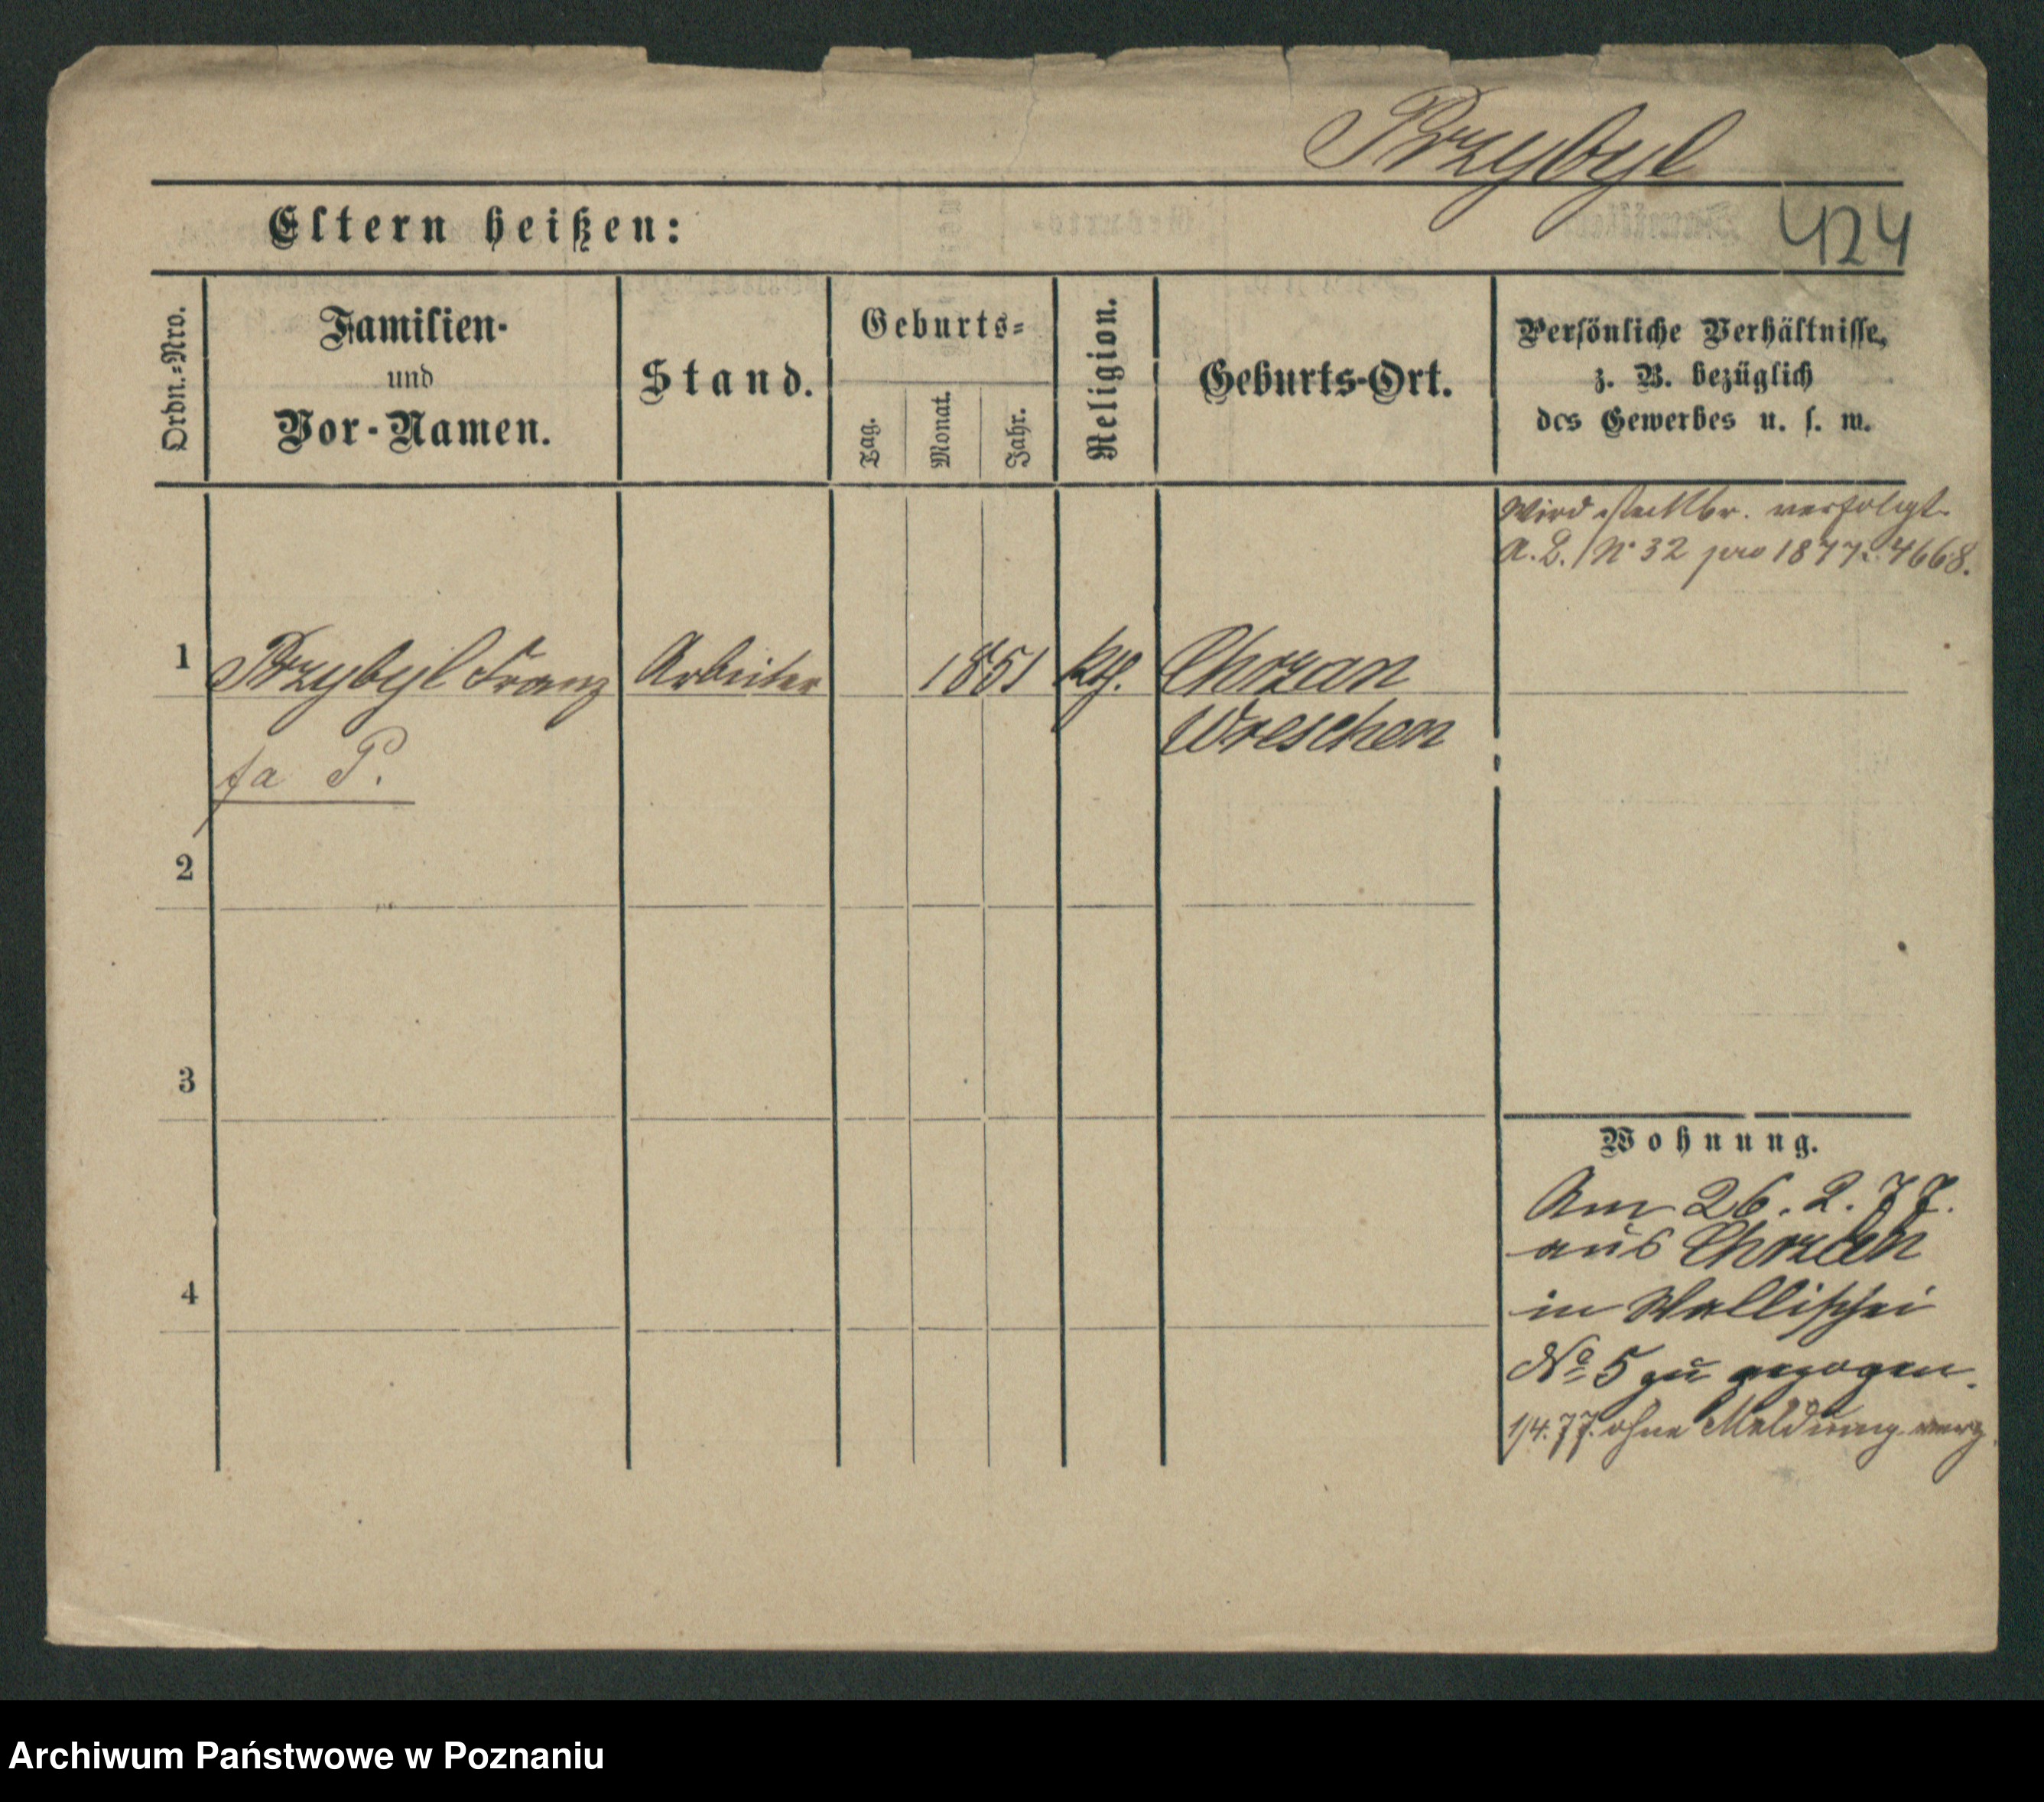 Przybyl
Eltern heißen:
424
Ordn.=Nro.
Familien-
und
Vor-Namen.
Stand.
Geburts=
Tag.
Monat.
Jahr.
Religion.
Geburts-Ort.
Persönliche Verhältnisse,
z. B. bezüglich
des Gewerbes u. s. w.
Wird steckbr. verfolgt
A. B. No 32 pro 1877. 4668.
1 Przybyl Franz Arbeiter 1851 kth. Chorzan
Wreschen
fa P.
2
3
4
Wohnung.
Am 26. 2. 77.
aus Chorzan
in Wallischei
No 5 zu gezogen.
1/4. 77. ohne Meldung verz
Archiwum Państwowe w Poznaniu